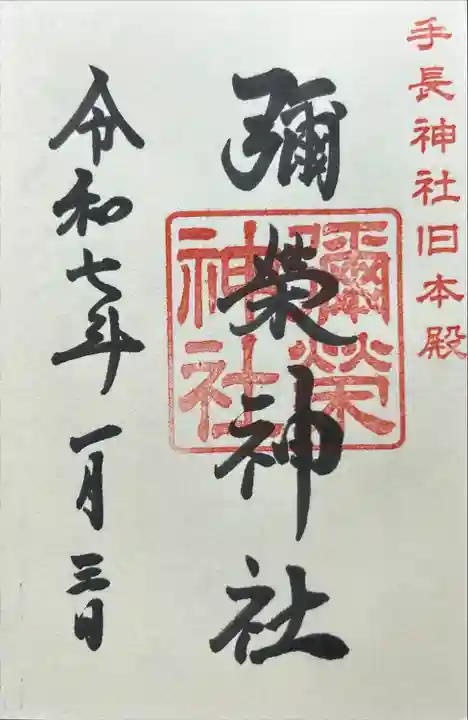 手長神社旧本殿
彌榮神社
彌榮
神社
令和七年一月三日